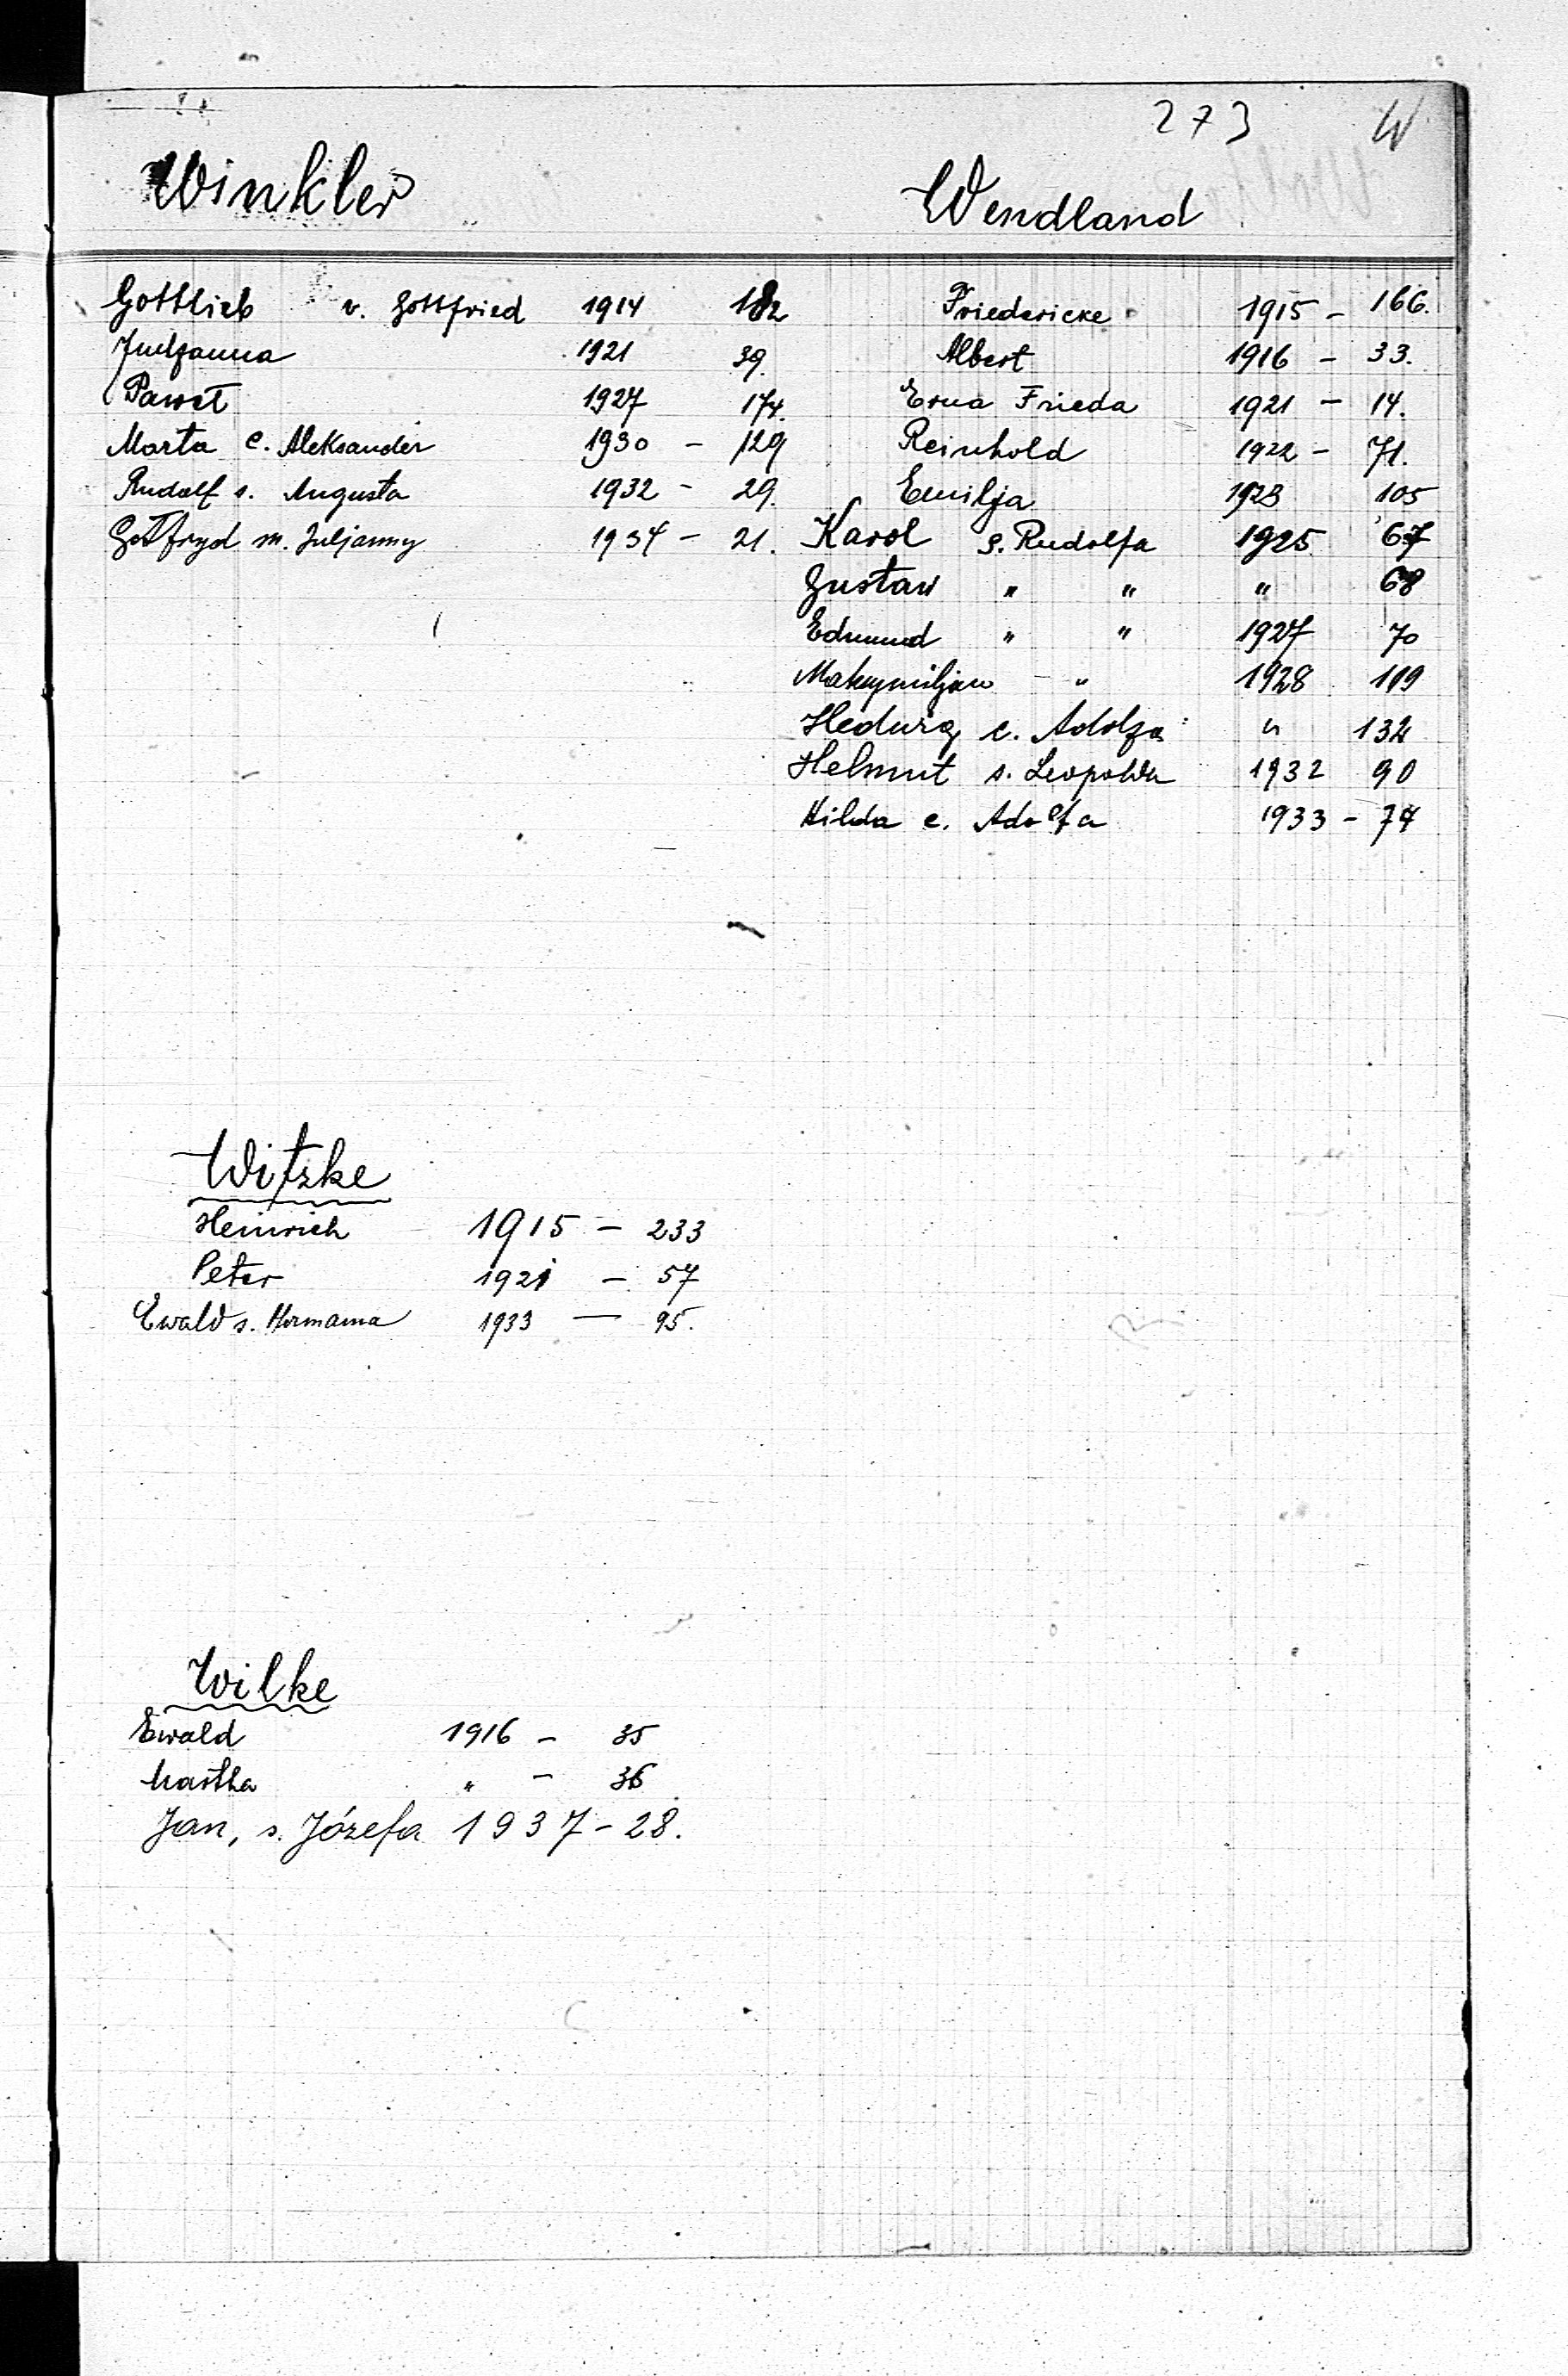 273 W
Winkler
Gottlieb v. Gottfried 1914 182
1921 39.
Paweł 1927 174.
Marta c. Aleksander 1930 - 129
Rudolf s. Augusta 1932 - 29.
Gotfryd m. Juljanny 1934 - 21.
Wendland
Friedericke 1915 - 166.
Albert 1916 - 33.
Erna Frieda 1921 - 14.
Reinhold 1922 - 71.
Emilja 1923 105
Karol s. Rudolfa 1925 67
Gustaw " " " 68
Edmund " " 1927 70
Maksymiljan - " 1928 119
Hedwig c. Adolfa " 132
Helmut s. Leopolda 1932 90
Hilda c. Adolfa 1933 - 74
Witzke
Heinrich 1915 - 233
Peter 1921 - 57
Ewald s. Hermanna 1933 - 95.
Wilke
Ewald 1916 - 35
Martha " - 36
Jan, s. Józefa 1937 - 28.